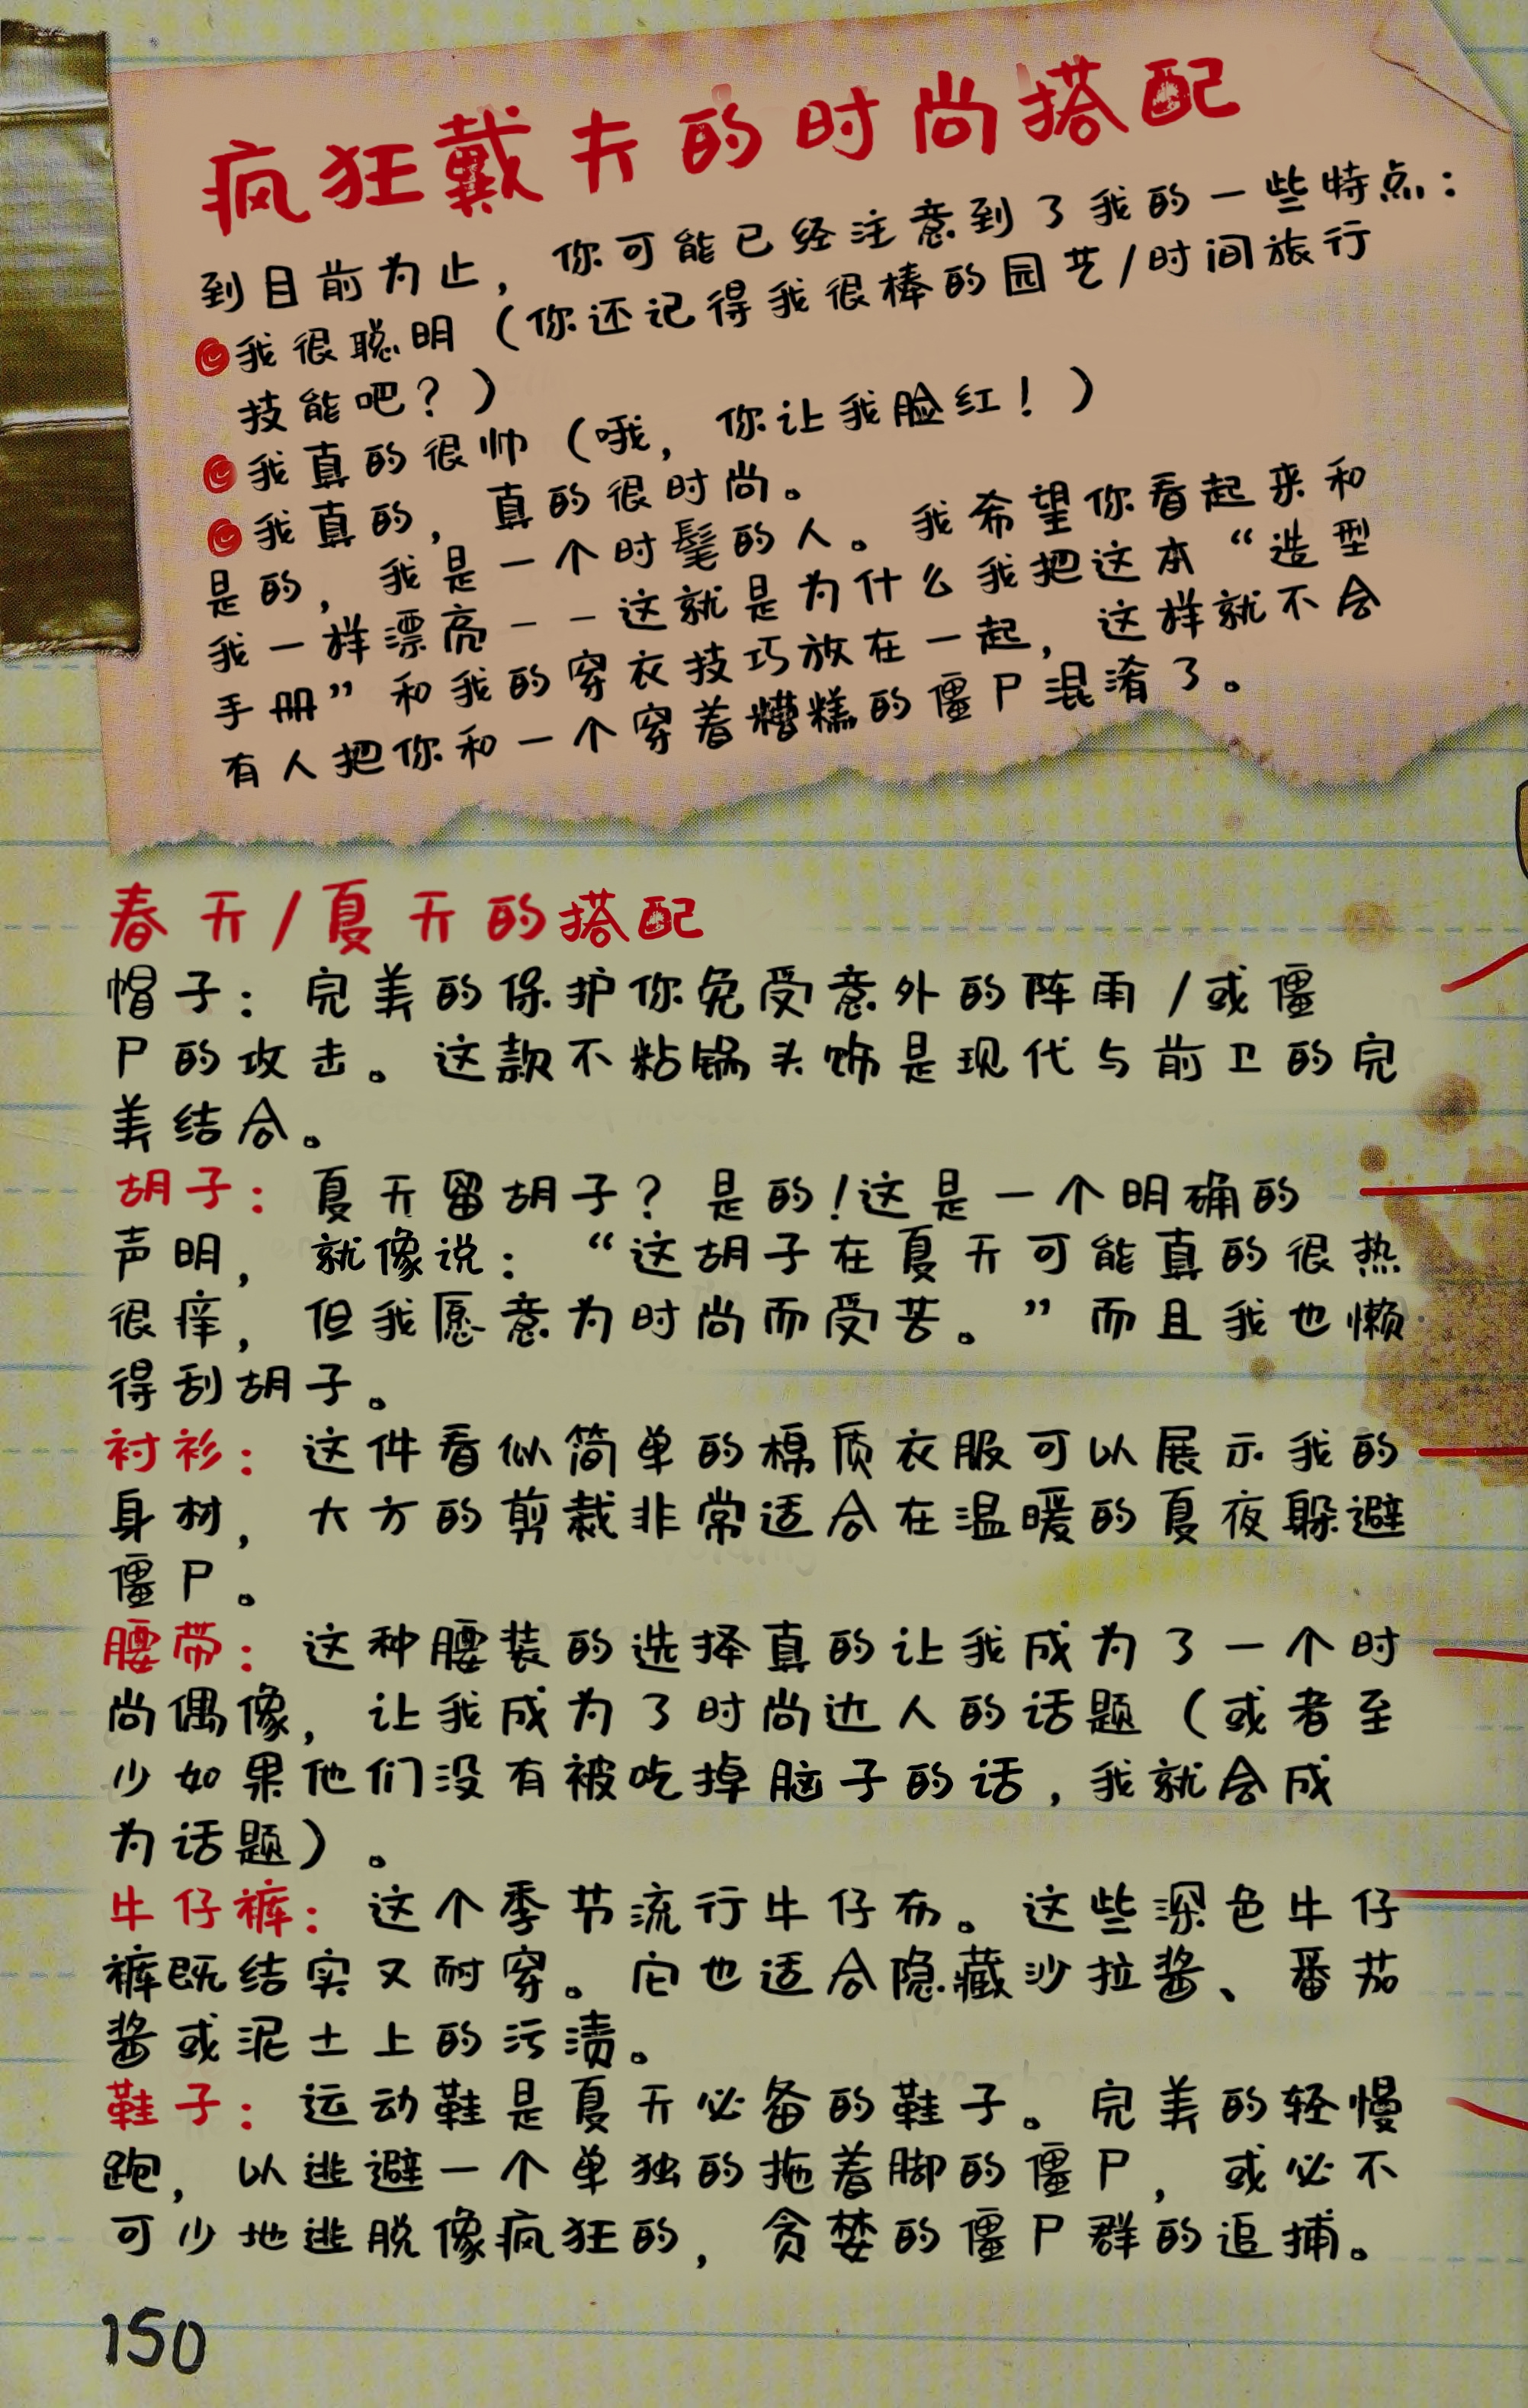 疯狂戴夫的时尚搭配
到目前为止，你可能已经注意到了我的一些特点：
我很聪明（你还记得我很棒的园艺/时间旅行
技能吧？）
我真的很帅（哦，你让我脸红！）
我真的，真的很时尚。
是的，我是一个时髦的人。我希望你看起来和
我一样漂亮－－这就是为什么我把这本“造型
手册”和我的穿衣技巧放在一起，这样就不会
有人把你和一个穿着糟糕的僵尸混淆了。
春天/夏天的搭配
帽子：完美的保护你免受意外的阵雨/或僵
尸的攻击。这款不粘锅头饰是现代与前卫的完
美结合。
胡子：夏天留胡子？是的！这是一个明确的
声明，就像说：“这胡子在夏天可能真的很热
很痒，但我愿意为时尚而受苦。”而且我也懒
得刮胡子。
衬衫：这件看似简单的棉质衣服可以展示我的
身材，大方的剪裁非常适合在温暖的夏夜躲避
僵尸。
腰带：这种腰装的选择真的让我成为了一个时
尚偶像，让我成为了时尚达人的话题（或者至
少如果他们没有被吃掉脑子的话，我就会成
为话题）。
牛仔裤：这个季节流行牛仔布。这些深色牛仔
裤既结实又耐穿。它也适合隐藏沙拉酱、番茄
酱或泥土上的污渍。
鞋子：运动鞋是夏天必备的鞋子。完美的轻慢
跑，以逃避一个单独的拖着脚的僵尸，或必不
可少地逃脱像疯狂的，贪婪的僵尸群的追捕。
150